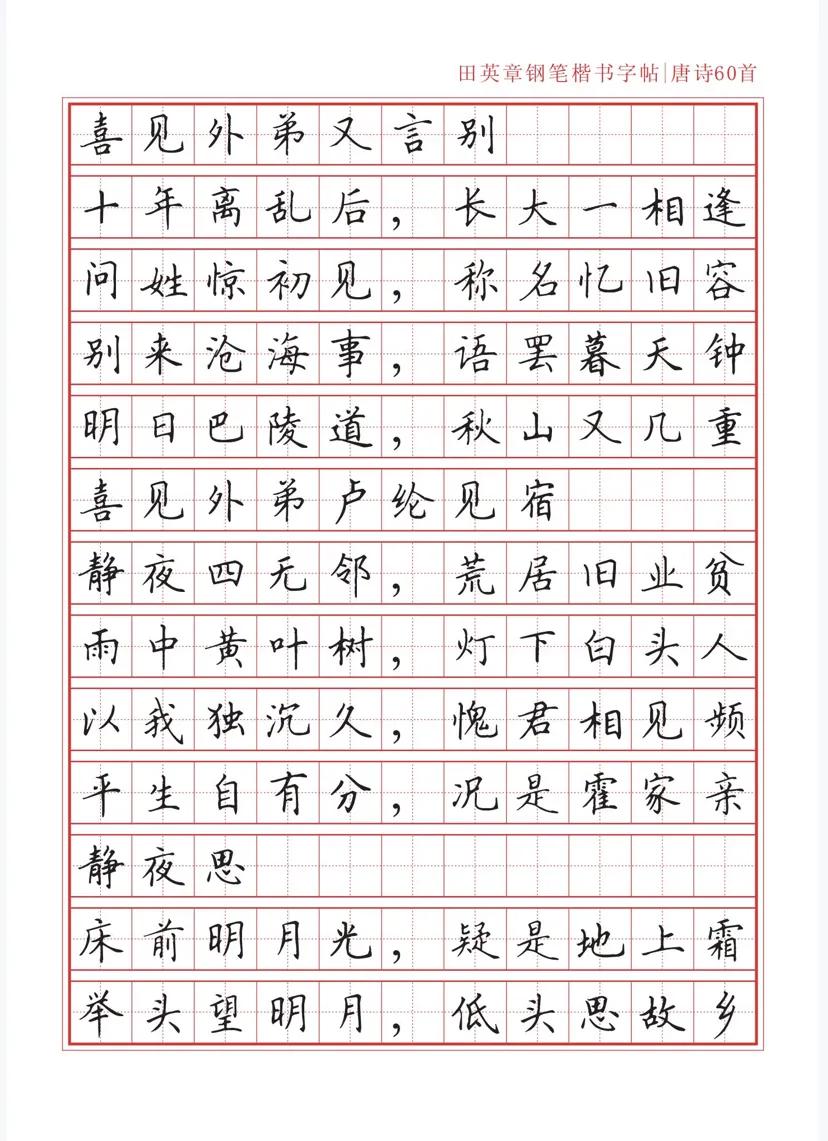 田英章钢笔楷书字帖|唐诗60首
喜见外弟又言别
十年离乱后，长大一相逢
问姓惊初见，称名忆旧容
别来沧海事，语罢暮天钟
明日巴陵道，秋山又几重
喜见外弟卢纶见宿
静夜四无邻，荒居旧业贫
雨中黄叶树，灯下白头人
以我独沉久，愧君相见频
平生自有分，况是霍家亲
静夜思
床前明月光，疑是地上霜
举头望明月，低头思故乡